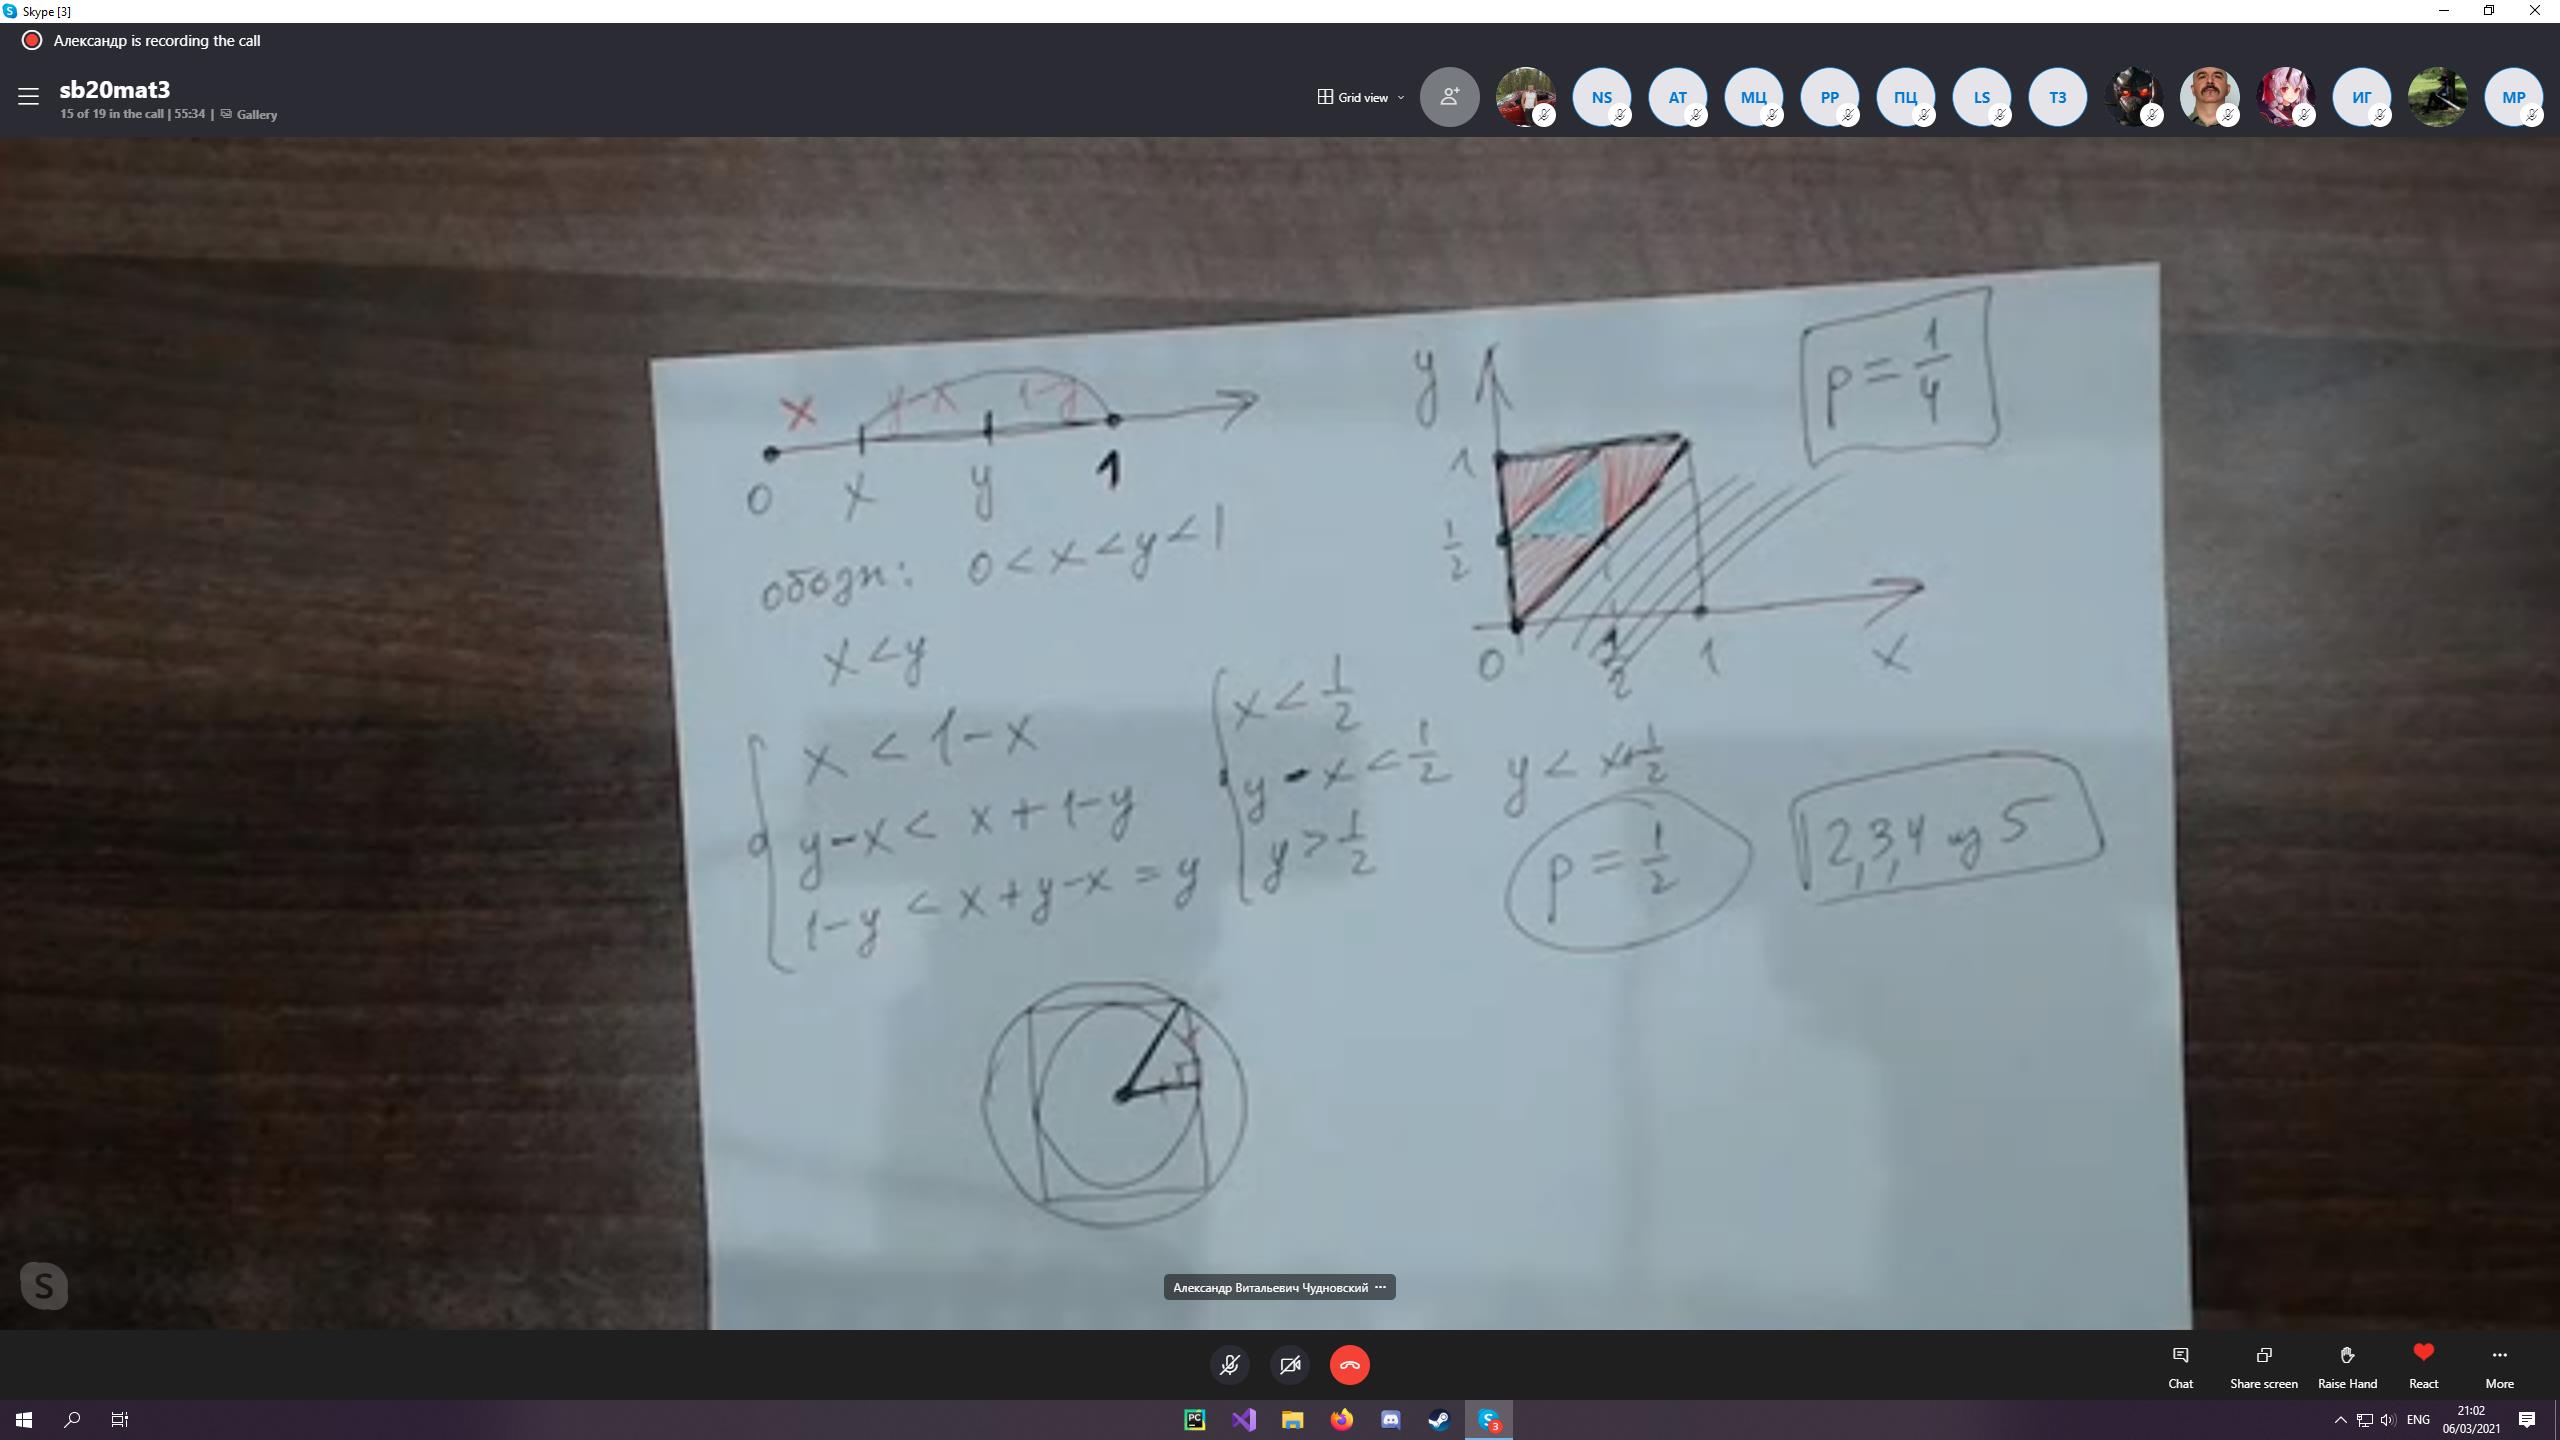 Skype [3]
Александр is recording the call
sb20mat3
15 of 19 in the call | 55:34 | Gallery
Grid view
NS
AT
МЦ
PP
ПЦ
LS
ТЗ
ИГ
MP
x y-x 1-y
0 x y 1
обозн: 0 < x < y < 1
x < y
x < 1-x
y-x < x+1-y
1-y < x+y-x = y
x < 1/2
y - x < 1/2
y > 1/2
y < x+1/2
y
1
1/2
0 1/2 1 x
p = 1/4
p = 1/2
2,3,4 из 5
Александр Витальевич Чудновский
Chat
Share screen
Raise Hand
React
More
PC
S 3
ENG
21:02
06/03/2021